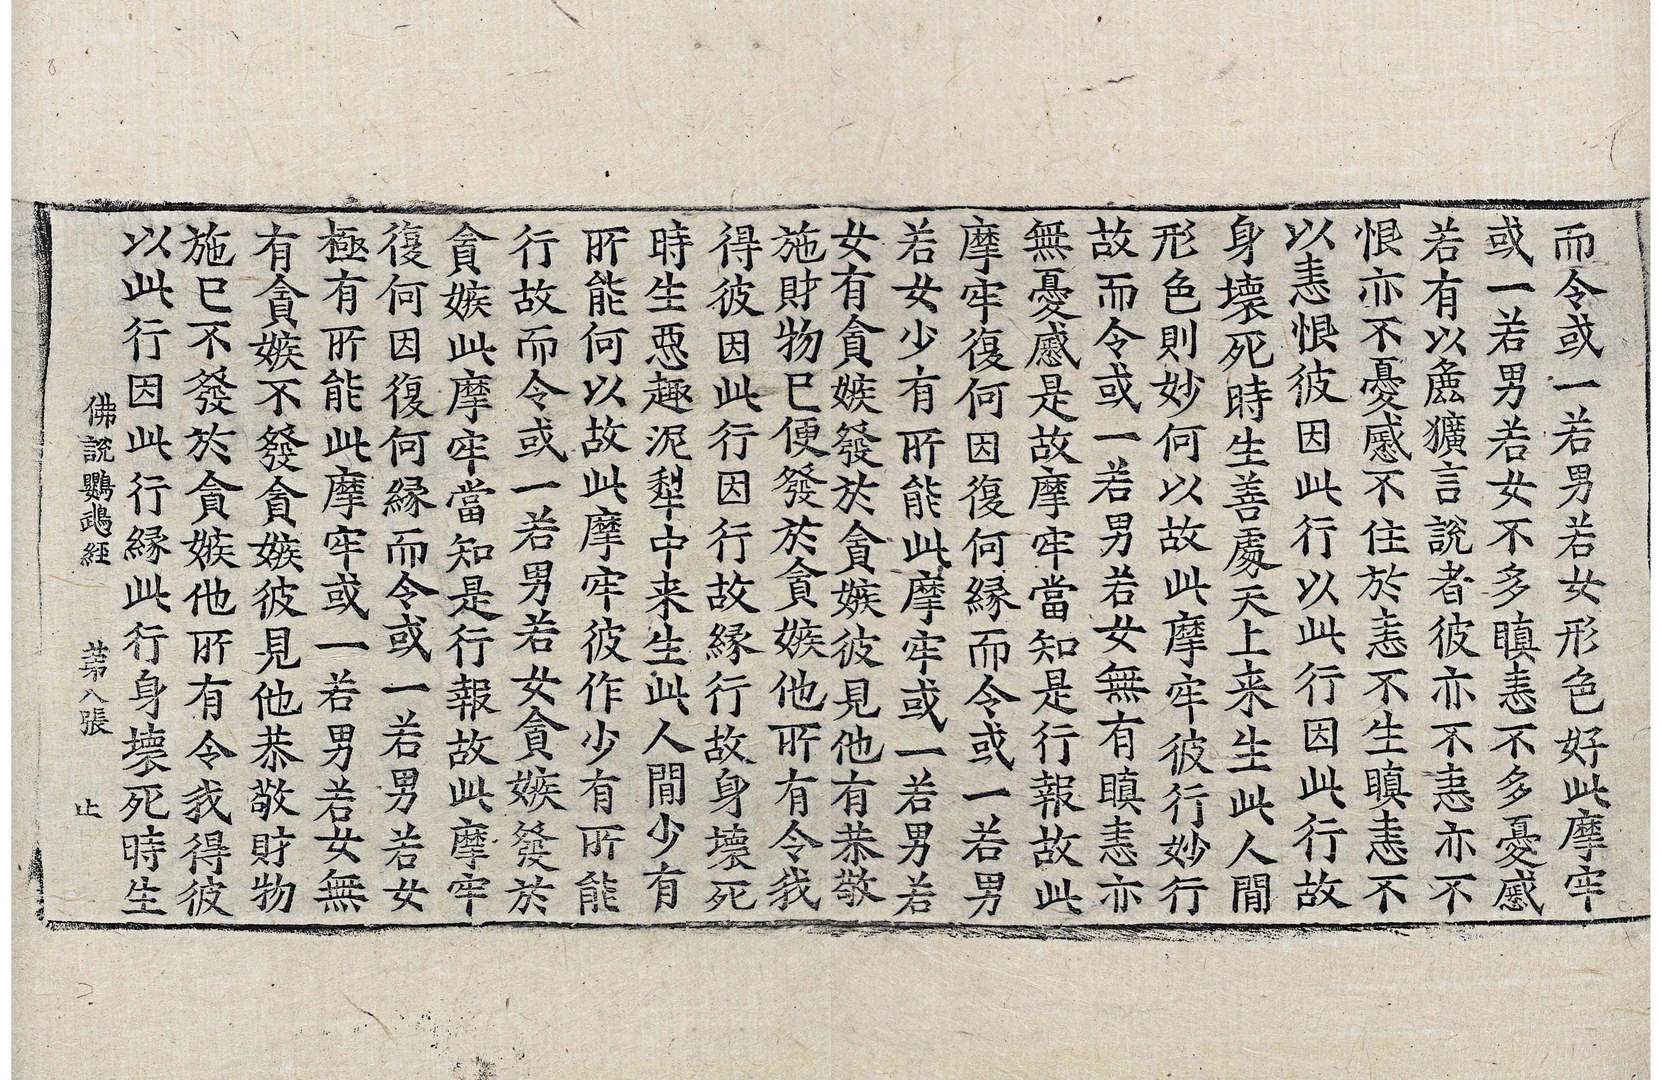 而令或一若男若女形色好此摩牢
或一若男若女不多瞋恚不多憂慼
若有以麁獷言說者彼亦不恚亦不
恨亦不憂慼不住於恚不生瞋恚不
以恚恨彼因此行以此行因此行故
身壞死時生善處天上来生此人間
形色則妙何以故此摩牢彼行妙行
故而令或一若男若女無有瞋恚亦
無憂慼是故摩牢當知是行報故此
摩牢復何因復何緣而令或一若男
若女少有所能此摩牢或一若男若
女有貪嫉發於貪嫉彼見他有恭敬
施財物已便發於貪嫉他所有令我
得彼因此行因行故緣行故身壞死
時生惡趣泥犁中来生此人間少有
所能何以故此摩牢彼作少有所能
行故而令或一若男若女貪嫉發於
貪嫉此摩牢當知是行報故此摩牢
復何因復何緣而令或一若男若女
極有所能此摩牢或一若男若女無
有貪嫉不發貪嫉彼見他恭敬財物
施已不發於貪嫉他所有令我得彼
以此行因此行緣此行身壞死時生
佛說鸚鵡經 苐八張 止